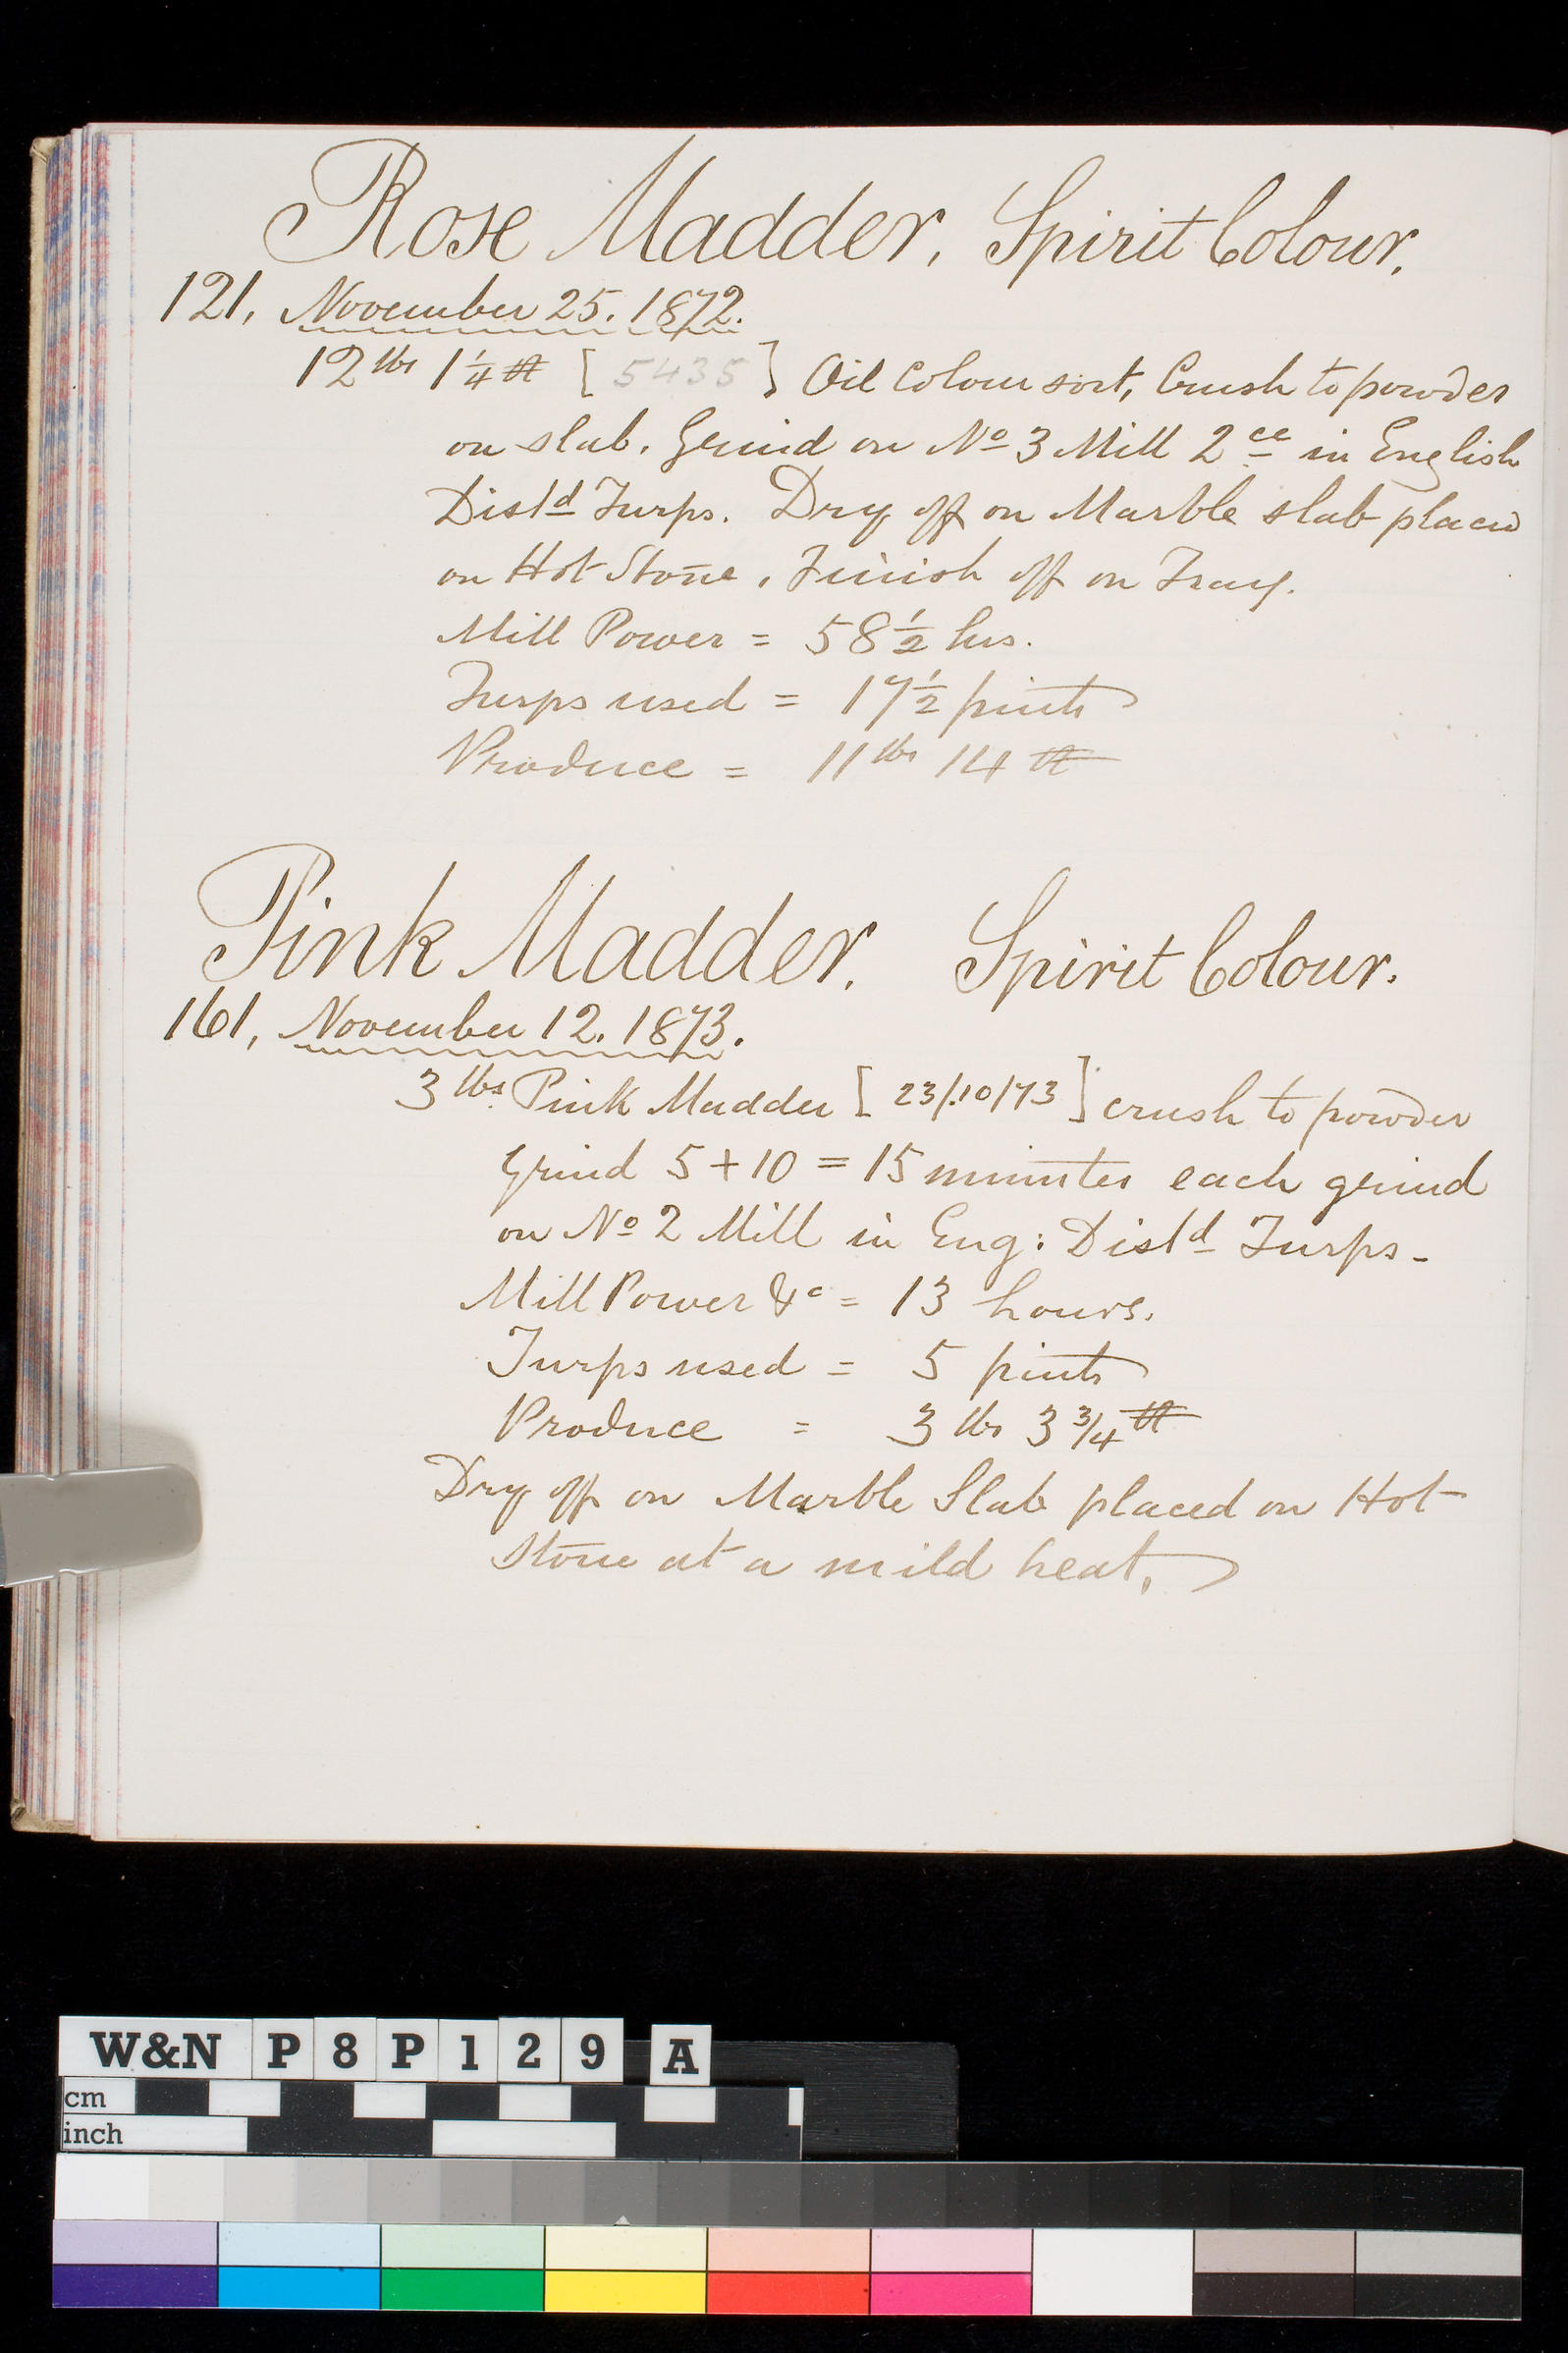 Rose Madder, Spirit Colour.
121, November 25. 1872.
12 lbs 1 1/4 [ 5435 ] Oil Colour sort, Crush to powder
on slab. Grind on No 3 Mill 2ce in English
Distd Turps. Dry off on Marble slab placed
on Hot Stone, Finish off on Tray.
Mill Power = 58 1/2 hrs.
Turps used = 17 1/2 pints
Produce = 11 lbs 14
Pink Madder. Spirit Colour.
161, November 12. 1873.
3 lbs. Pink Madder [ 23/10/73 ] crush to powder
Grind 5 + 10 = 15 minutes each grind
on No 2 Mill in Eng: Distd Turps -
Mill Power &c = 13 hours.
Turps used = 5 pints
Produce = 3 lbs 3 3/4
Dry off on Marble Slab placed on Hot
Stone at a mild heat,
W&N P8P129 A
cm
inch